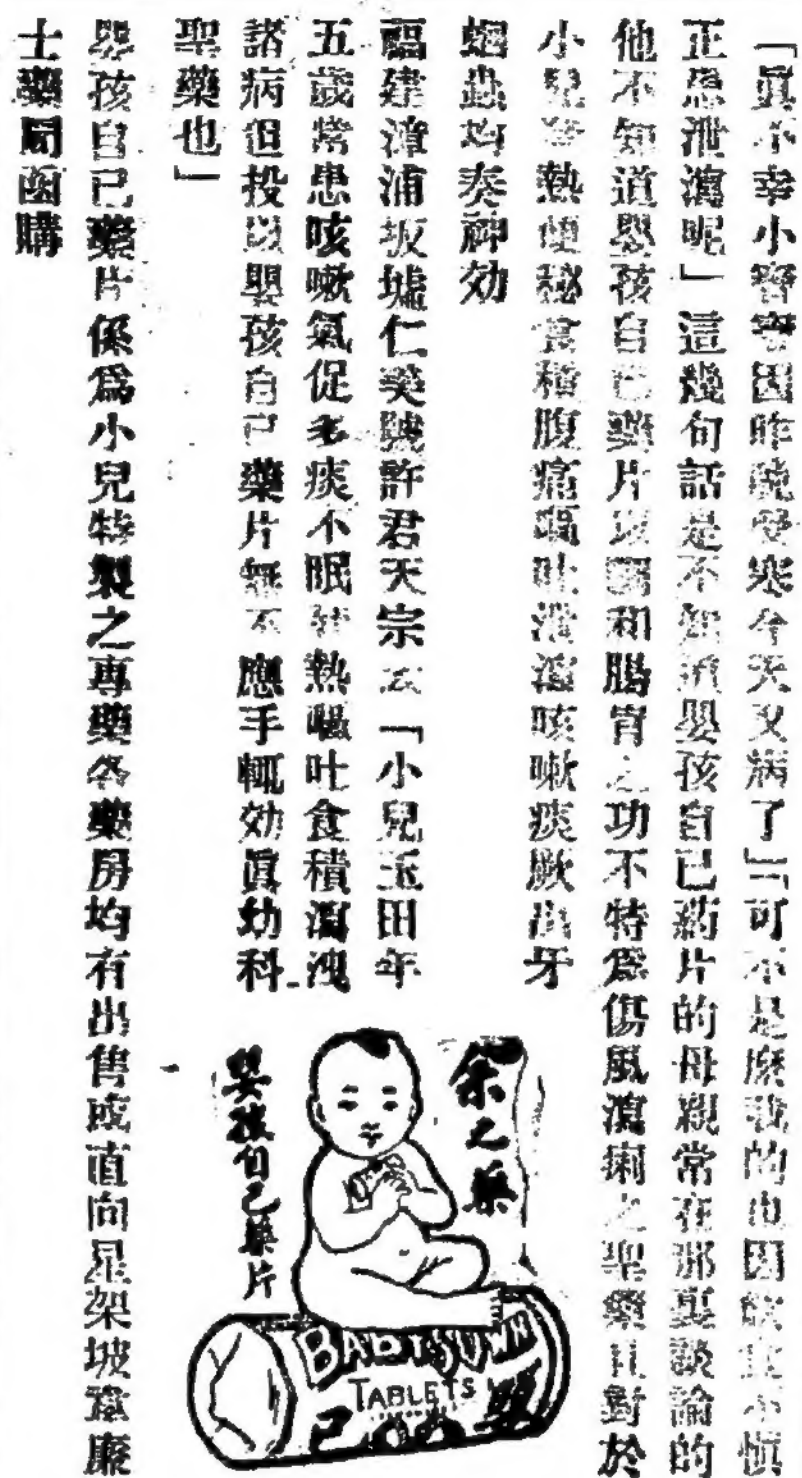 「眞不幸小寶寶因昨晚受寒今天又病了」「可不是麽我的也因飲食不愼
正患泄瀉呢」這幾句話是不知道嬰孩自己药片的母親常在那裏談論的
他不知道嬰孩自己藥片調和腸胃之功不特爲傷風瀉痢之聖藥且對於
小兒發熱便秘食積腹痛嘔吐泄瀉咳嗽痰厥出牙
蛔蟲均奏神効
福建漳浦坂墟仁美號許君天宗云「小兒玉田年
五歲常患咳嗽氣促多痰不眠發熱嘔吐食積瀉洩
諸病但投以嬰孩自己藥片無不應手輒効眞幼科
聖藥也」
嬰孩自己藥片係爲小兒特製之專藥各藥房均有出售或直向星架坡韋廉
士藥局函購
余之藥
嬰孩自己藥片
BABY'S OWN
TABLETS